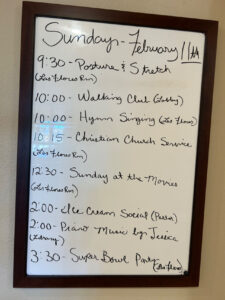 Sundays - February 11th
9:30 - Posture & Stretch
(Los Flores Rm)
10:00 - Walking Club (Lobby)
10:00 - Hymn Singing (Los Flores)
10:15 - Christian Church Service
(Los Flores Rm)
12:30 - Sunday at the Movies
(Los Flores Rm)
2:00 - Ice Cream Social (Patio)
2:00 - Piano Music by Jessica
(Library)
3:30 - Super Bowl Party
(Los Flores)